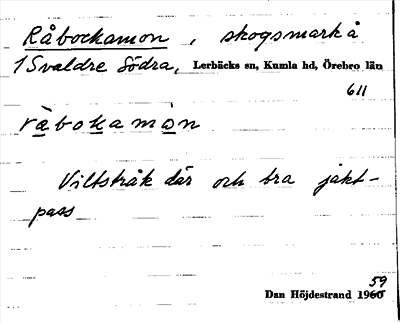 Råbockamon, skogsmark å
1 Svaldre Södra, Lerbäcks sn, Kumla hd, Örebro län
611
råbokamòn
Viltstråk där och bra jakt-
pass
59
Dan Höjdestrand 1960